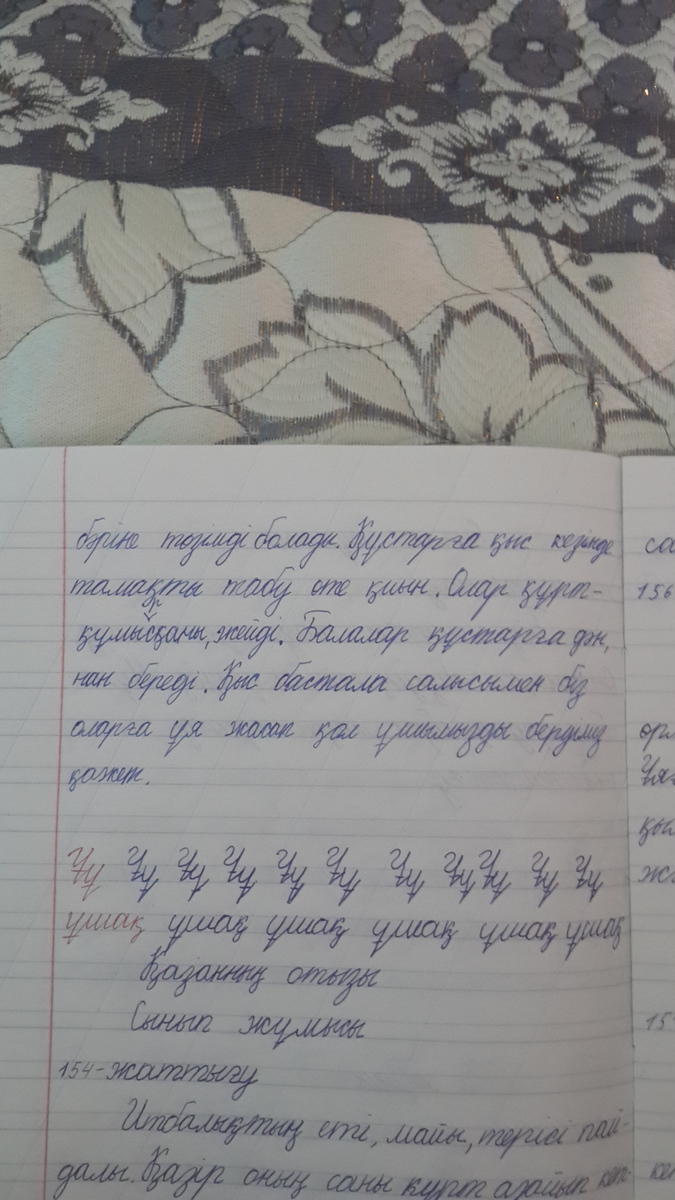 бәріне төзімді болады. Құстарға қыс кезінде
тамақты табу өте қиын. Олар құрт-
құмысқаны, жейді. Балалар құстарға дән,
нан береді. Қыс бастала салысымен біз
оларға ұя жасап қол ұшымызды беруіміз
қажет.
Ұұ Ұұ Ұұ Ұұ Ұұ Ұұ Ұұ Ұұ Ұұ Ұұ Ұұ
ұшақ ұшақ ұшақ ұшақ ұшақ ұшақ
Қазанның отызы
Сынып жұмысы
154-жаттығу
Итбалықтың еті, майы, терісі пай-
далы. Қазір оның саны күрт азайып кет-
156
қы